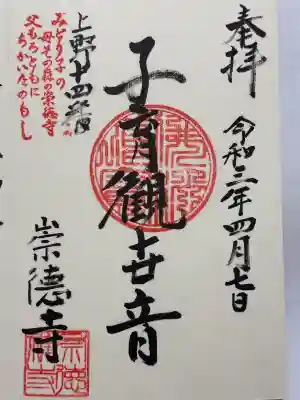 奉拝
令和三年四月七日
子育観世音
上野十四番
みどり子の
母その森の崇徳寺
父もろともに
ちかい
崇徳寺